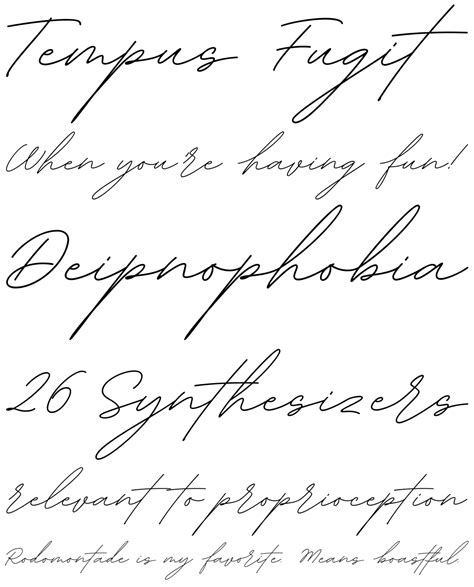 Tempus Fugit
When you're having fun!
Deipnophobia
26 Synthesizers
relevant to proprioception
Rodomontade is my favorite. Means boastful.